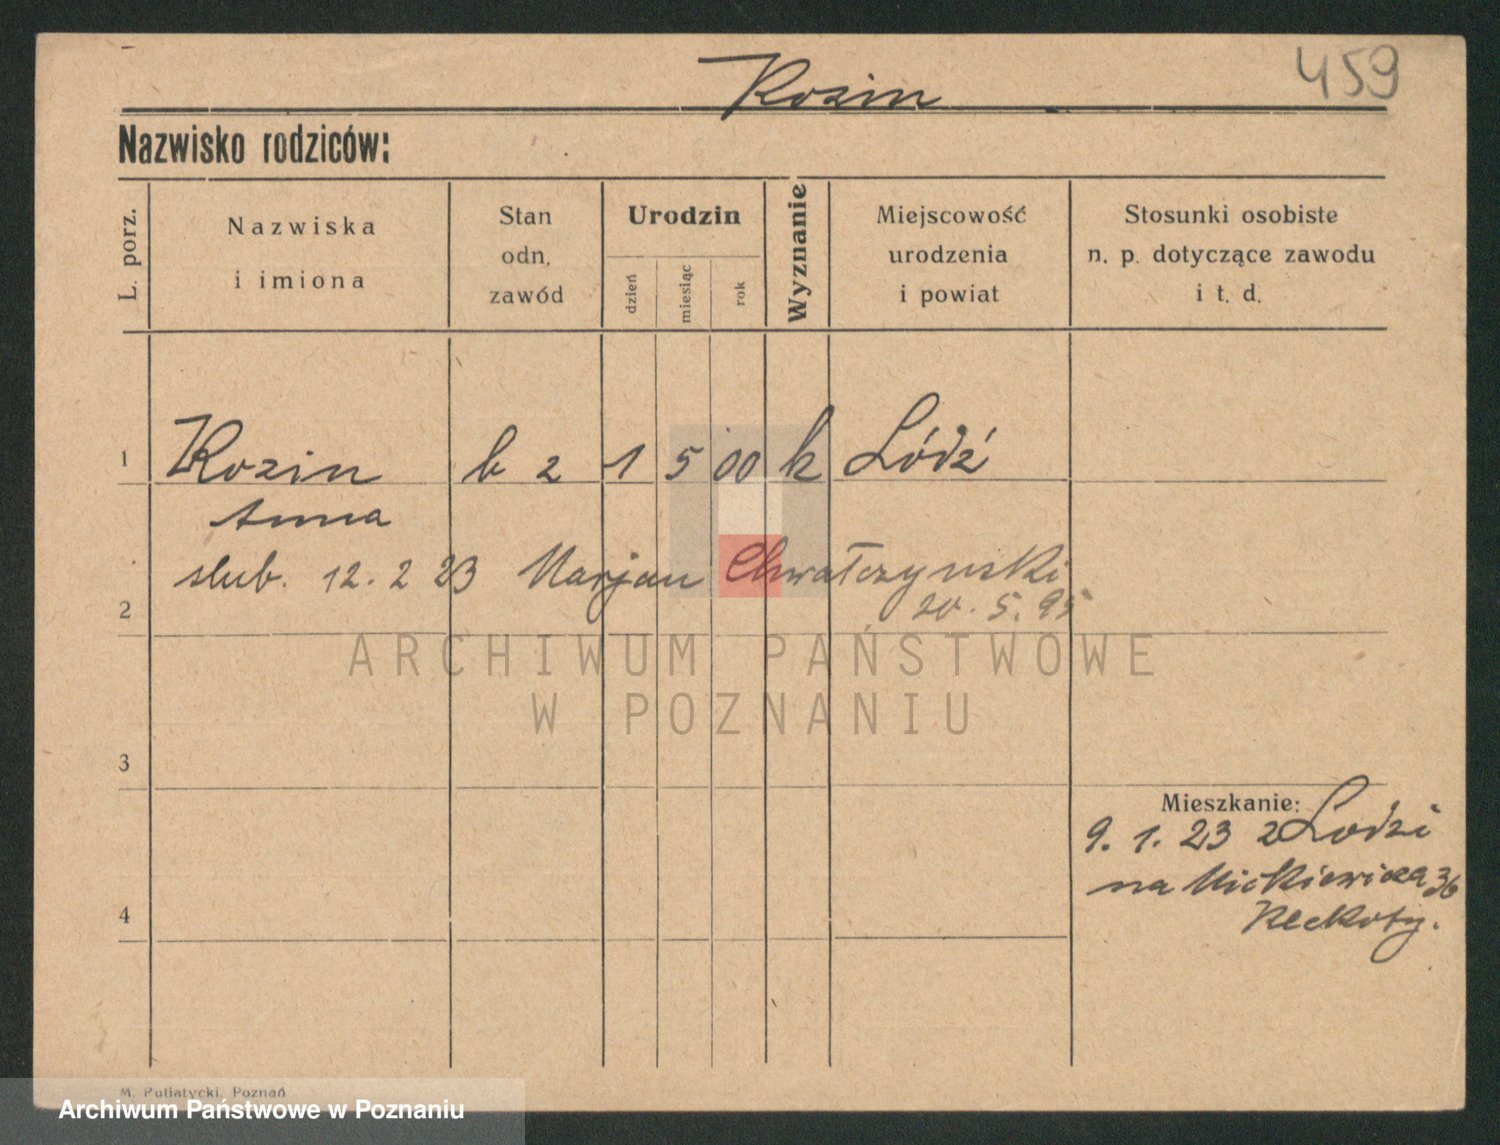 Rozin
459
Nazwisko rodziców:
L. porz.
Nazwiska
i imiona
Stan
odn.
zawód
Urodzin
dzień
miesiąc
rok
Wyznanie
Miejscowość
urodzenia
i powiat
Stosunki osobiste
n. p. dotyczące zawodu
i t. d.
1 Rozin b z 1 5 00 k Łódź
Anna
slub. 12. 2 23 Marjan Chwałczynski
2
20. 5. 95
ARCHIWUM PAŃSTWOWE
W POZNANIU
3
Mieszkanie:
9. 1. 23 z Łodzi
na Mickiewicza 36
4
M. Putiatycki, Poznań
Archiwum Państwowe w Poznaniu